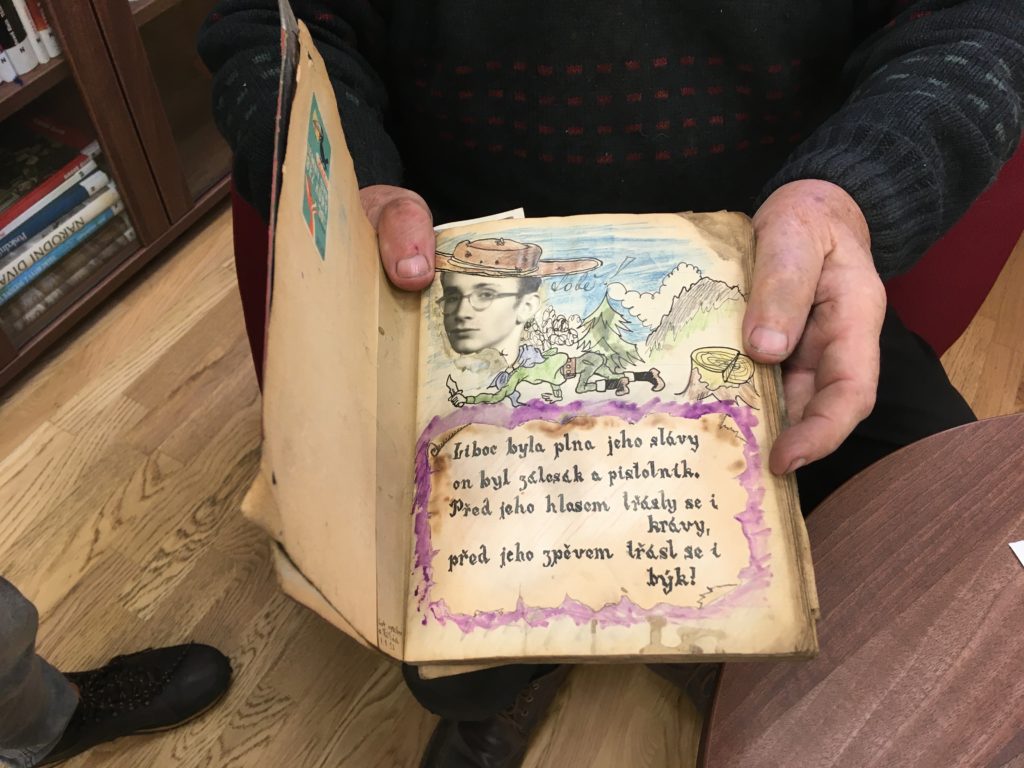 NÁRODNÍ DIV
Liboc byla plna jeho slávy
on byl zálesák a pistolník.
Před jeho hlasem třásly se i
krávy,
před jeho zpěvem třásl se i
býk!